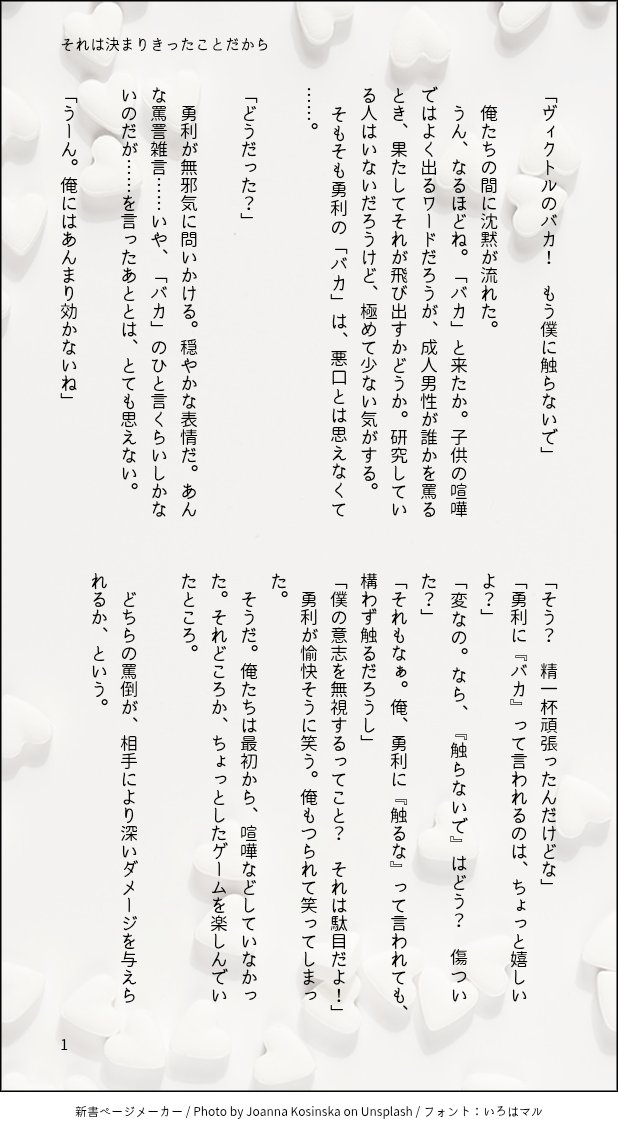 それは決まりきったことだから
「ヴィクトルのバカ！　もう僕に触らないで」
　俺たちの間に沈黙が流れた。
　うん、なるほどね。「バカ」と来たか。子供の喧嘩
ではよく出るワードだろうが、成人男性が誰かを罵る
とき、果たしてそれが飛び出すかどうか。研究してい
る人はいないだろうけど、極めて少ない気がする。
　そもそも勇利の「バカ」は、悪口とは思えなくて
……。
「どうだった？」
　勇利が無邪気に問いかける。穏やかな表情だ。あん
な罵詈雑言……いや、「バカ」のひと言くらいしかな
いのだが……を言ったあととは、とても思えない。
「うーん。俺にはあんまり効かないね」
「そう？　精一杯頑張ったんだけどな」
「勇利に『バカ』って言われるのは、ちょっと嬉しい
よ？」
「変なの。なら、『触らないで』はどう？　傷つい
た？」
「それもなぁ。俺、勇利に『触るな』って言われても、
構わず触るだろうし」
「僕の意志を無視するってこと？　それは駄目だよ！」
　勇利が愉快そうに笑う。俺もつられて笑ってしまっ
た。
　そうだ。俺たちは最初から、喧嘩などしていなかっ
た。それどころか、ちょっとしたゲームを楽しんでい
たところ。
　どちらの罵倒が、相手により深いダメージを与えら
れるか、という。
1
新書ページメーカー / Photo by Joanna Kosinska on Unsplash / フォント：いろはマル